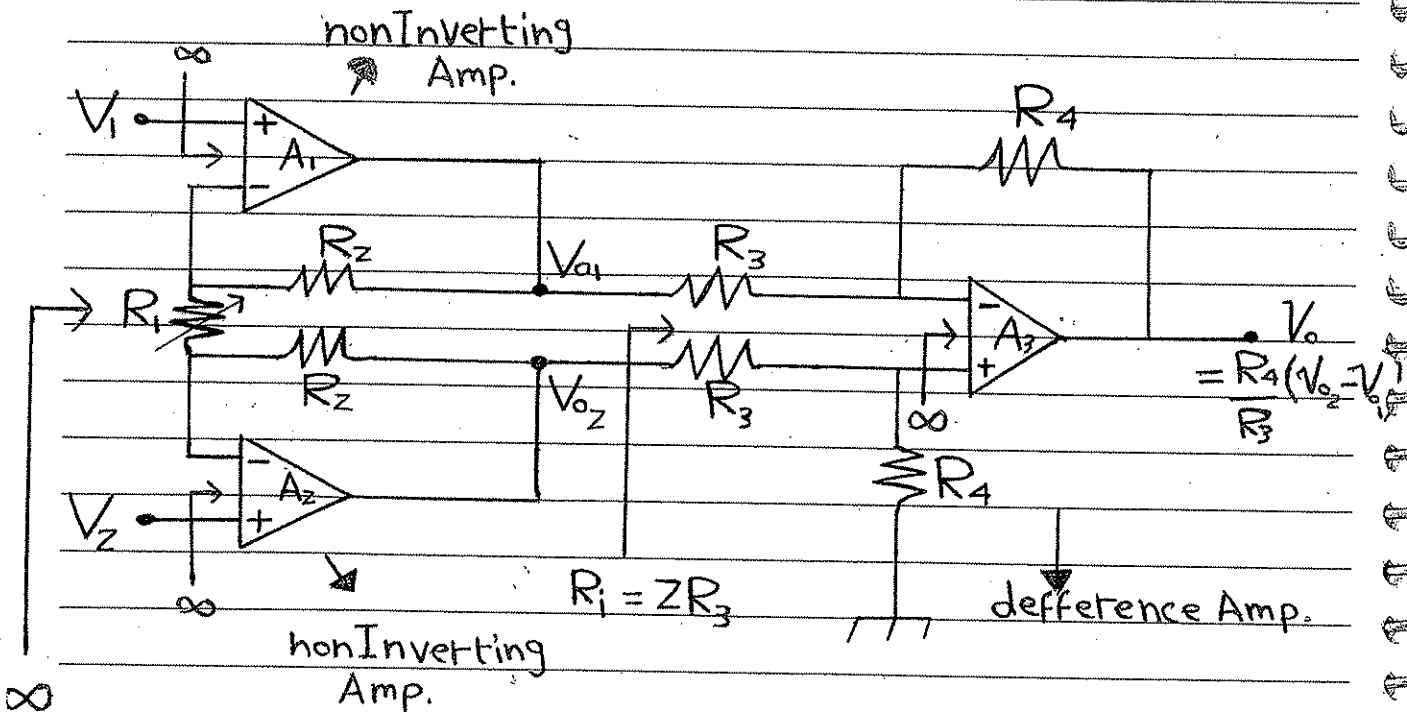 nonInverting
Amp.
∞
V₁
+
A₁
-
R₄
R₂
Vo₁
R₃
R₁
-
A₃
+
Vo
= R₄/R₃ (Vo₂ - Vo₁)
R₂
Vo₂
R₃
∞
-
A₂
+
V₂
R₄
∞
Ri = 2R₃
defference Amp.
nonInverting
Amp.
∞